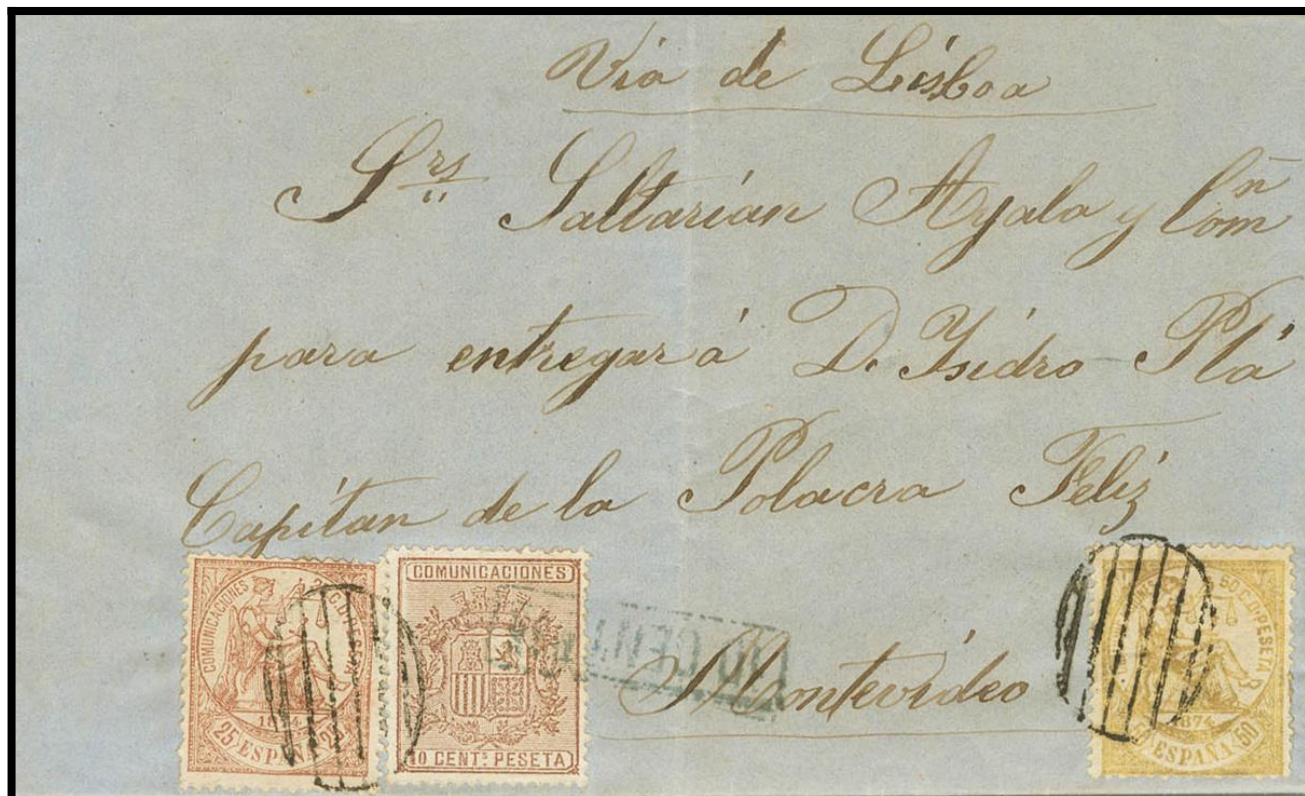 Via de Lisboa
Srs Saltarián Ayala y Comn
para entregar á D. Ysidro Plá
Capitan de la Polacra Feliz
Montevideo
COMUNICACIONES
1874
25 ESPAÑA 25
COMUNICACIONES
10 CENT. PESETA
10 CENT
50 C. DE PESETA
1874
ESPAÑA 50